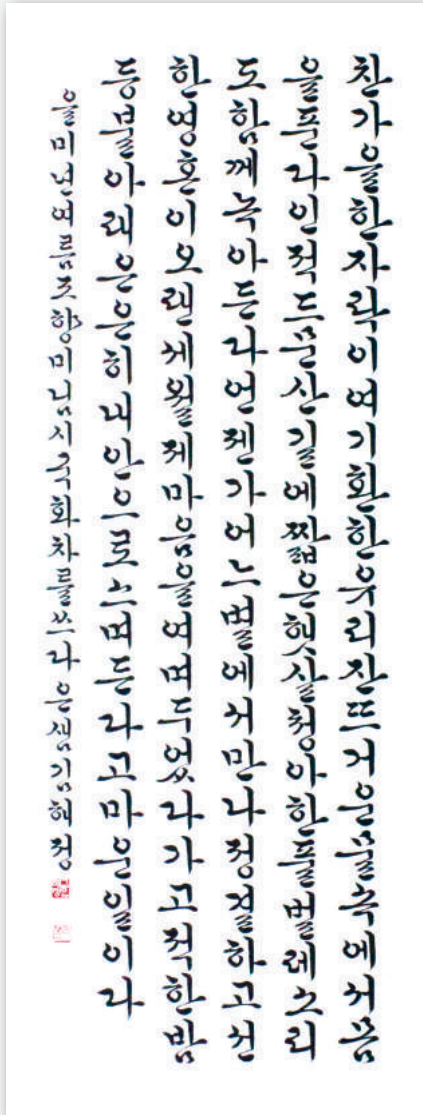 찬가을한자락이여기환한유리잔뜨거운물속에서몸
을푼다인적드문산길에짧은햇살청아한풀벌레소리
도함께녹아든다언젠가어느별에서만나정결하고선
한영혼이오랜세월제마음을여며두었다가고적한밤
등불아래은은히내안으로스며든다고마운일이다
을미년여름조향미님시국화차를쓰다은샘김혜정